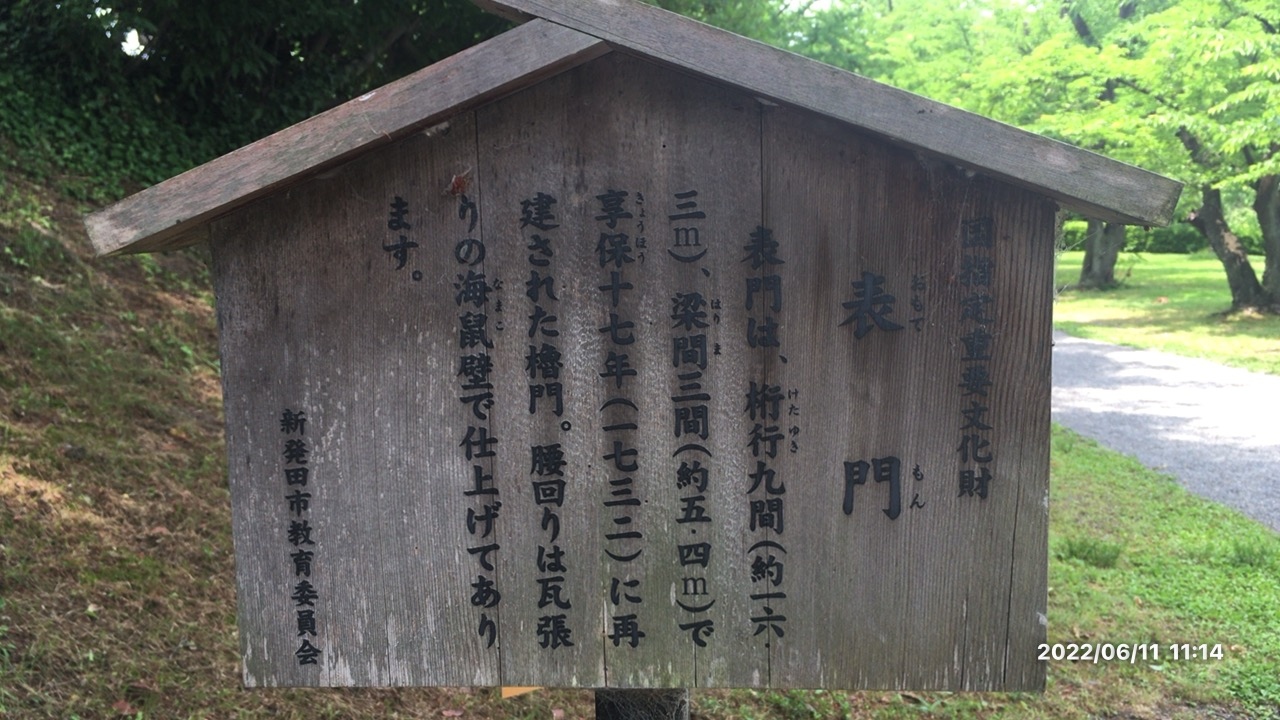 国指定重要文化財
おもて もん
表門
けた ゆき
表門は、桁行九間(約一六.
はり ま
三m)、梁間三間(約五.四m)で
きょうほう
享保十七年(一七三二)に再
建された櫓門。腰回りは瓦張
なまこ
りの海鼠壁で仕上げてあり
ます。
新発田市教育委員会
2022/06/11 11:14